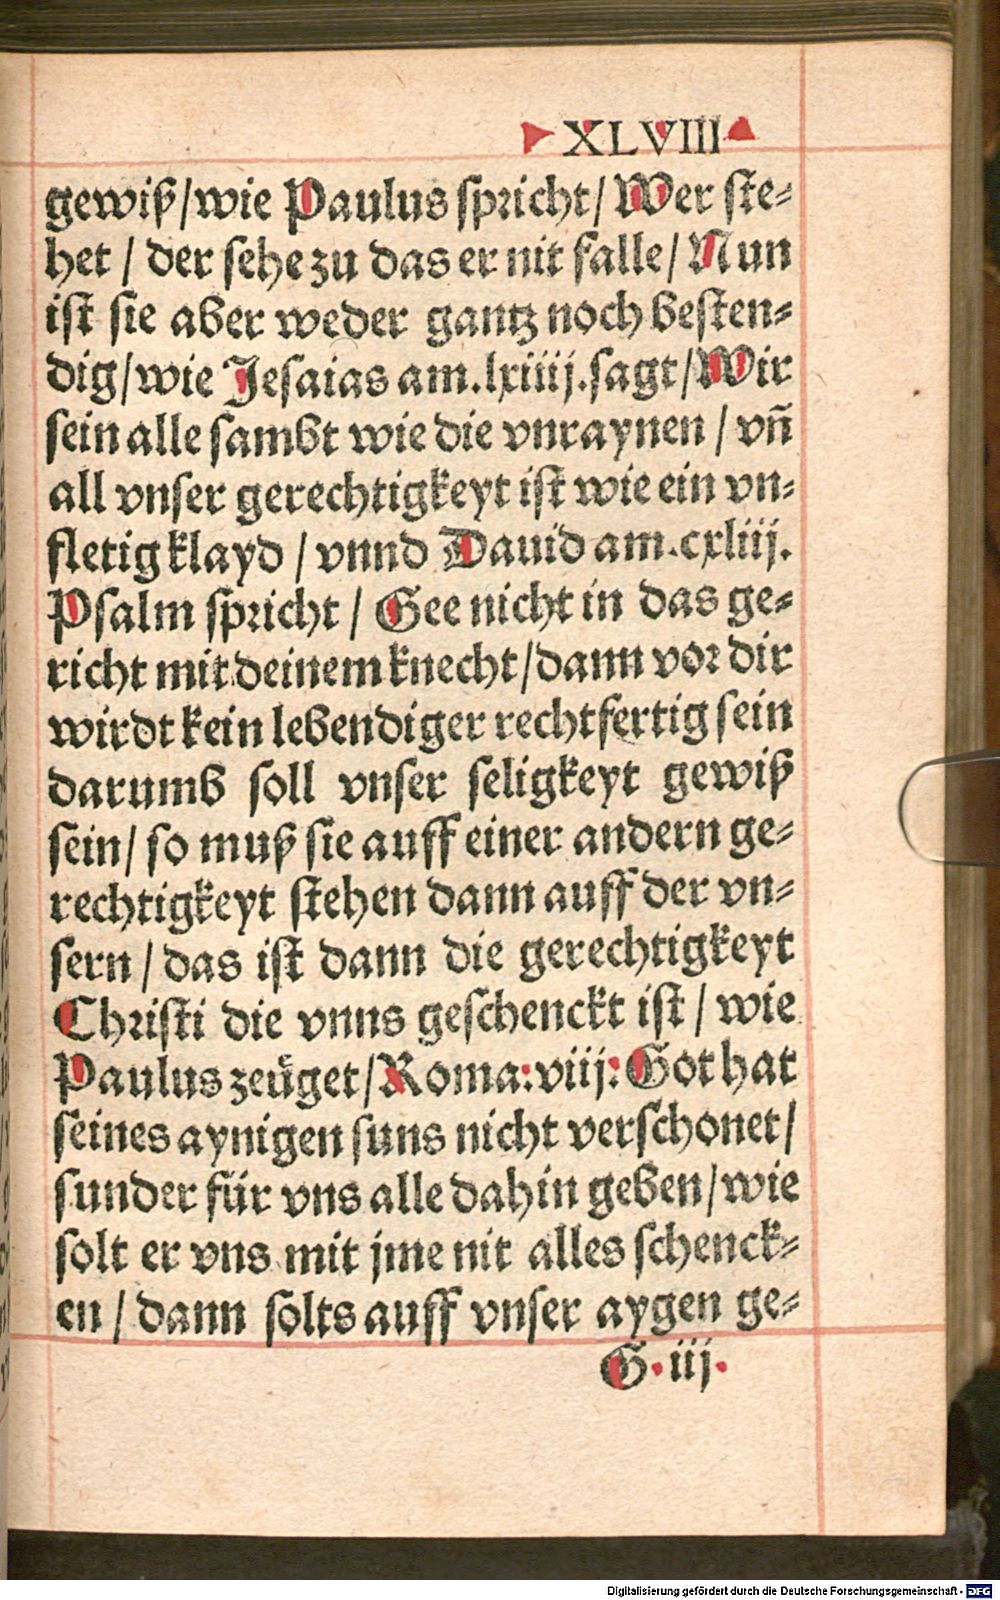 XLVIII
gewiß/wie Paulus spricht/ Wer ste-
het / der sehe zu das er nit falle/ Nun
ist sie aber weder gantz noch besten-
dig/wie Jesaias am.lxiiij.sagt/Wir
sein alle sambt wie die vnraynen / vñ
all vnser gerechtigkeyt ist wie ein vn-
fletig klayd / vnnd Dauid am.cxliij.
Psalm spricht / Gee nicht in das ge-
richt mit deinem knecht/dann vor dir
wirdt kein lebendiger rechtfertig sein
darumb soll vnser seligkeyt gewiß
sein/ so muß sie auff einer andern ge-
rechtigkeyt stehen dann auff der vn-
sern / das ist dann die gerechtigkeyt
Christi die vnns geschenckt ist / wie
Paulus zeüget/Roma:viij: Got hat
seines aynigen suns nicht verschonet/
sunder für vns alle dahin geben/wie
solt er vns mit jme nit alles schenck-
en / dann solts auff vnser aygen ge-
G.iij.
Digitalisierung gefördert durch die Deutsche Forschungsgemeinschaft - DFG